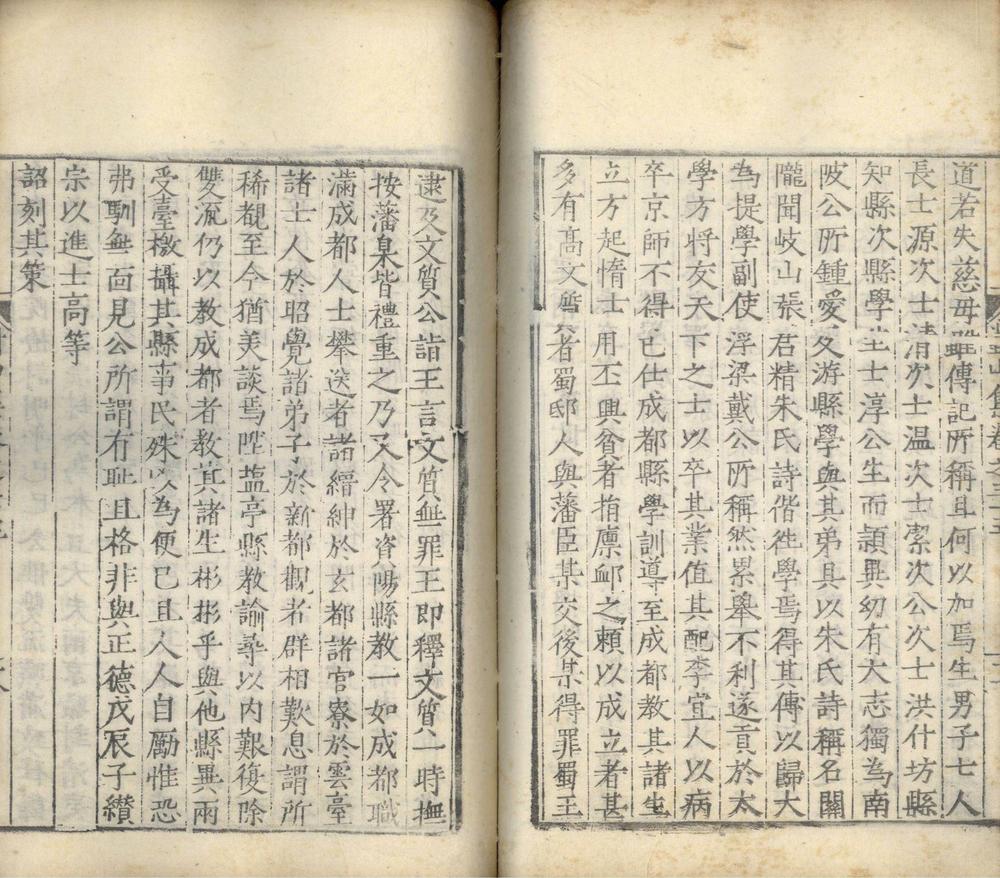 道若失慈母雖傳記所稱且何以加焉生男子七人
長士源次士清次士温次士潔次公次士洪什坊縣
知縣次縣學生士淳公生而頴異幼有大志獨為南
陂公所鍾愛及游縣學與其弟具以朱氏詩稱名關
隴聞岐山張君精朱氏詩偕徃學焉得其傳以歸大
為提學副使浮梁戴公所稱然累舉不利遂貢於太
學方將友天下之士以卒其業值其配李宜人以病
卒京師不得已仕成都縣學訓導至成都教其諸生
立方起惰士用丕興貧者捐廪䘏之賴以成立者甚
多有髙文者蜀邸人與藩臣某交後某得罪蜀王
逮及文質公詣王言文質無罪王即釋文質一時撫
按藩臬皆禮重之乃又令署資陽縣教一如成都職
滿成都人士攀送者諸縉紳於玄都諸官寮於雲臺
諸士人於昭覺諸弟子於新都觀者群相歎息謂所
稀覩至今猶美談焉陞塩亭縣教諭尋以内艱復除
雙流仍以教成都者教其諸生彬彬乎與他縣異兩
受臺檄攝其縣事民殊以為便已且人人自勵惟恐
弗馴無靣見公所謂有耻且格非與正德戊辰子纉
宗以進士高等
詔刻其策